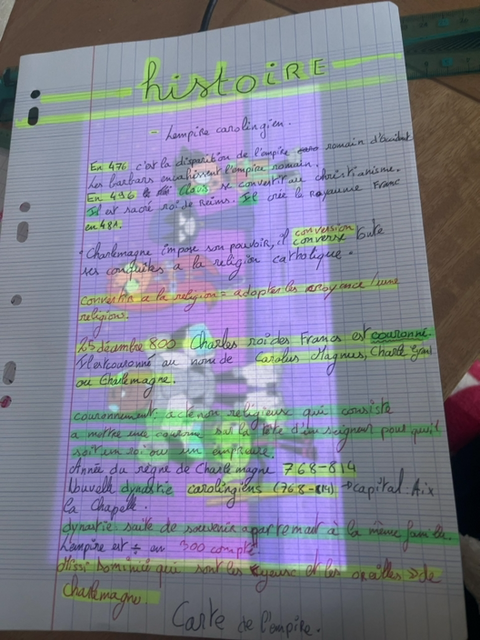 histoIRE
- L'empire carolingien.
En 476, c'est la disparition de l'empire romain d'occident
Les barbars envahissent l'empire romain.
En 496 Clovis se convertit au christianisme.
Il est sacré roi de Reims. Il crée la Royaume Franc
en 481.
• Charlemagne impose son pouvoir, il conversion converse toute
ses conquêtes a la religion catholique.
convertir a la religion = adopter les croyance / une
religion.
25 décembre 800 Charles roi des Francs est couronné.
Il est couronné au nom de Carolus Magnus, Charle
ou Charlemagne.
couronnement: non religieuse qui consiste
a mettre une sur la tête d'un seigneur pour qu'il
soit un roi ou un
Année du règne de Charlemagne 768-814
Nouvelle dynastie carolingiens (768-814) → capital Aix
la Chapelle.
dynastie: suite de souvenir appartenait à la même famille.
L'empire est ÷ en 300 compté
Missi Dominici qui sont les yeuse et les oreilles → de
Charlemagne
Carte de l'empire.